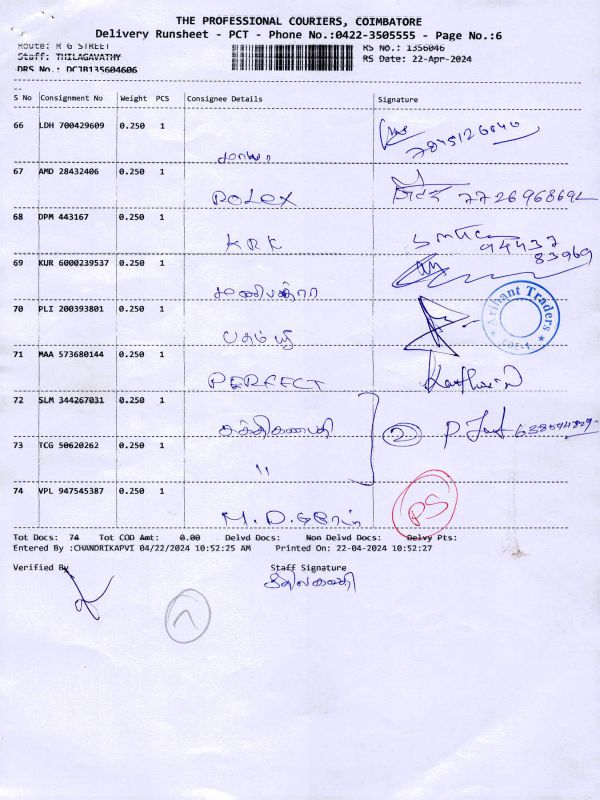 THE PROFESSIONAL COURIERS, COIMBATORE
Delivery Runsheet - PCT - Phone No.:0422-3505555 - Page No.:6
Route: R G STREET
RS No.: 1356046
Staff: THILAGAVATHY
RS Date: 22-Apr-2024
DRS No.: DCJB135604606
S No Consignment No Weight PCS Consignee Details Signature
66 LDH 700429609 0.250 1
67 AMD 28432406 0.250 1
ROLEX 7726968692
68 DPM 443167 0.250 1
KRK 94437
83969
69 KUR 6000239537 0.250 1
70 PLI 200393801 0.250 1
Arihant Traders
71 MAA 573680144 0.250 1
PERFECT
72 SLM 344267031 0.250 1
சக்திகணபதி 2
73 TCG 50620262 0.250 1
"
74 VPL 947545387 0.250 1
M.D. PS
Tot Docs: 74 Tot COD Amt: 0.00 Delvd Docs: Non Delvd Docs: Delvy Pts:
Entered By :CHANDRIKAPVI 04/22/2024 10:52:25 AM Printed On: 22-04-2024 10:52:27
Verified By Staff Signature